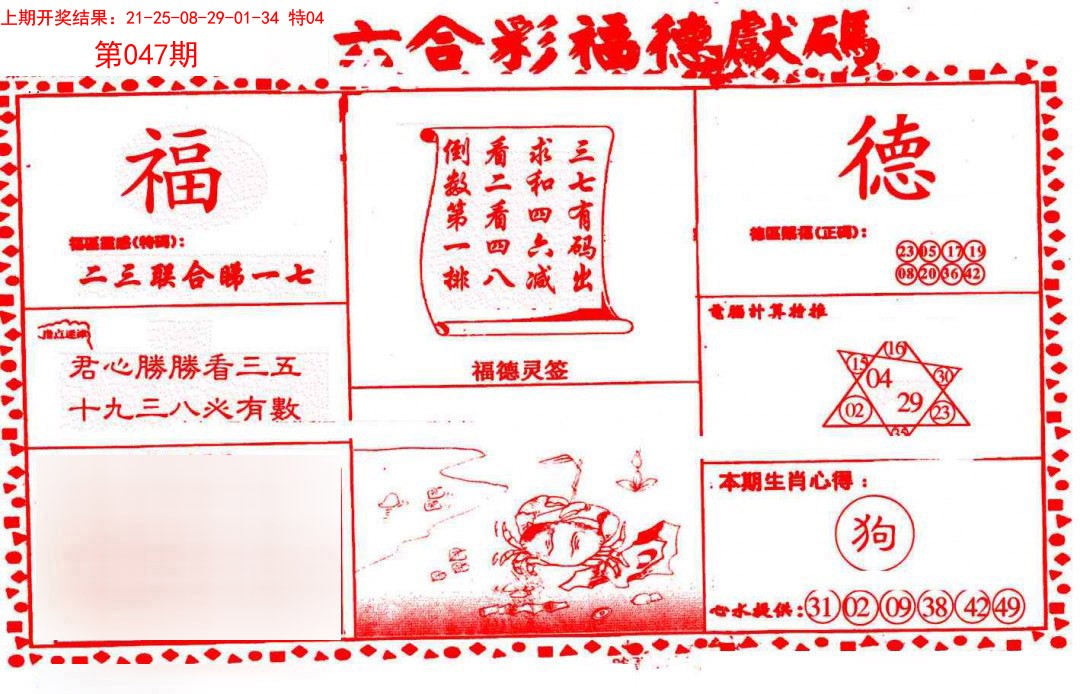 上期开奖结果：21-25-08-29-01-34 特04
第047期
六合彩福德獻碼
福
福區靈感(特碼)：
二三联合睇一七
指点迷津
君心勝勝看三五
十九三八必有數
三七有码出
求和四六减
看二看四八
倒数第一排
福德灵签
德
德區賜福(正碼)：
23 05 17 19
08 20 36 42
電腦計算檢推
16
15 04 30
02 29 23
35
本期生肖心得：
狗
心水提供：31 02 09 38 42 49